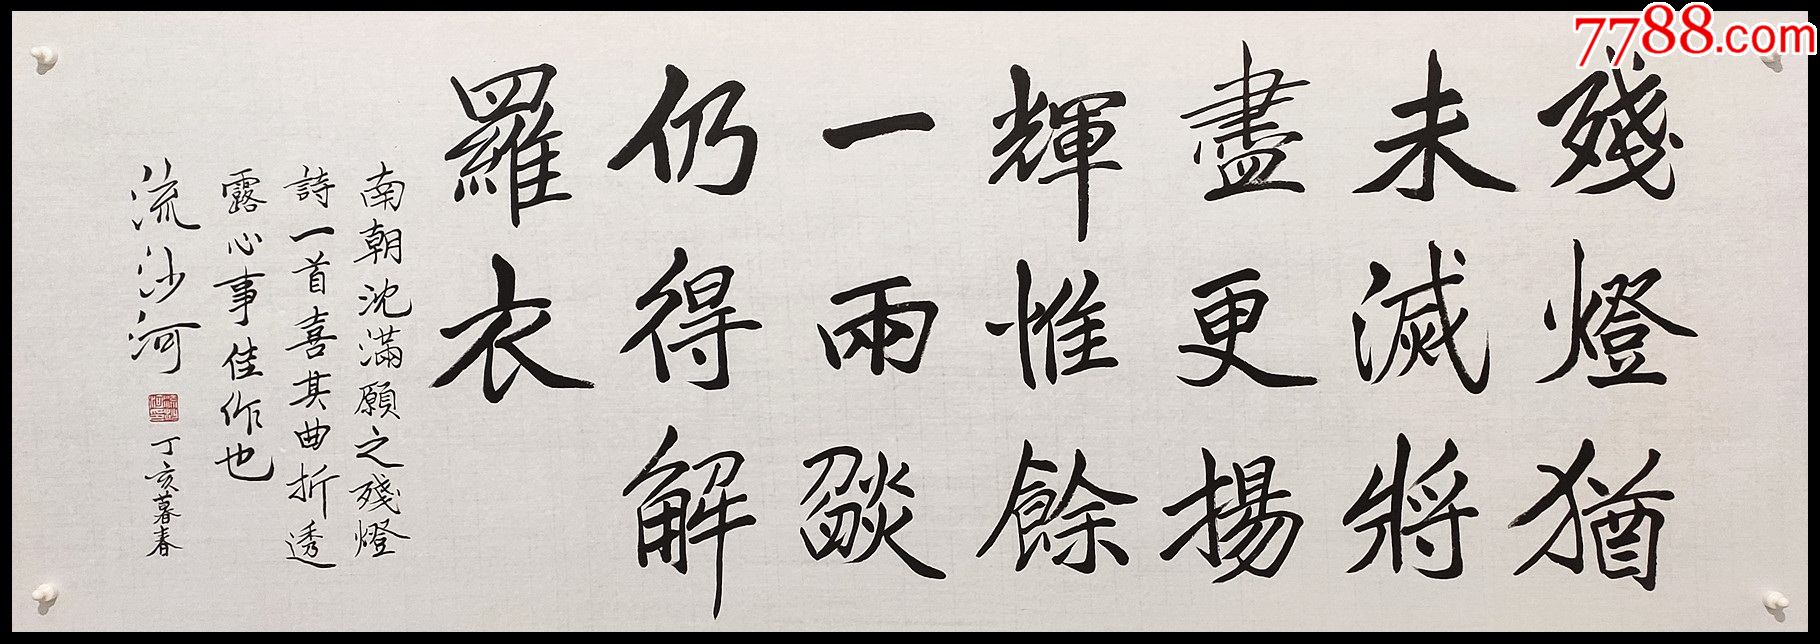 殘燈猶
未滅將
盡更揚
輝惟餘
一兩燄
仍得解
羅衣
南朝沈滿願之殘燈
詩一首喜其曲折透
露心事佳作也
流沙河
丁亥暮春
7788.com